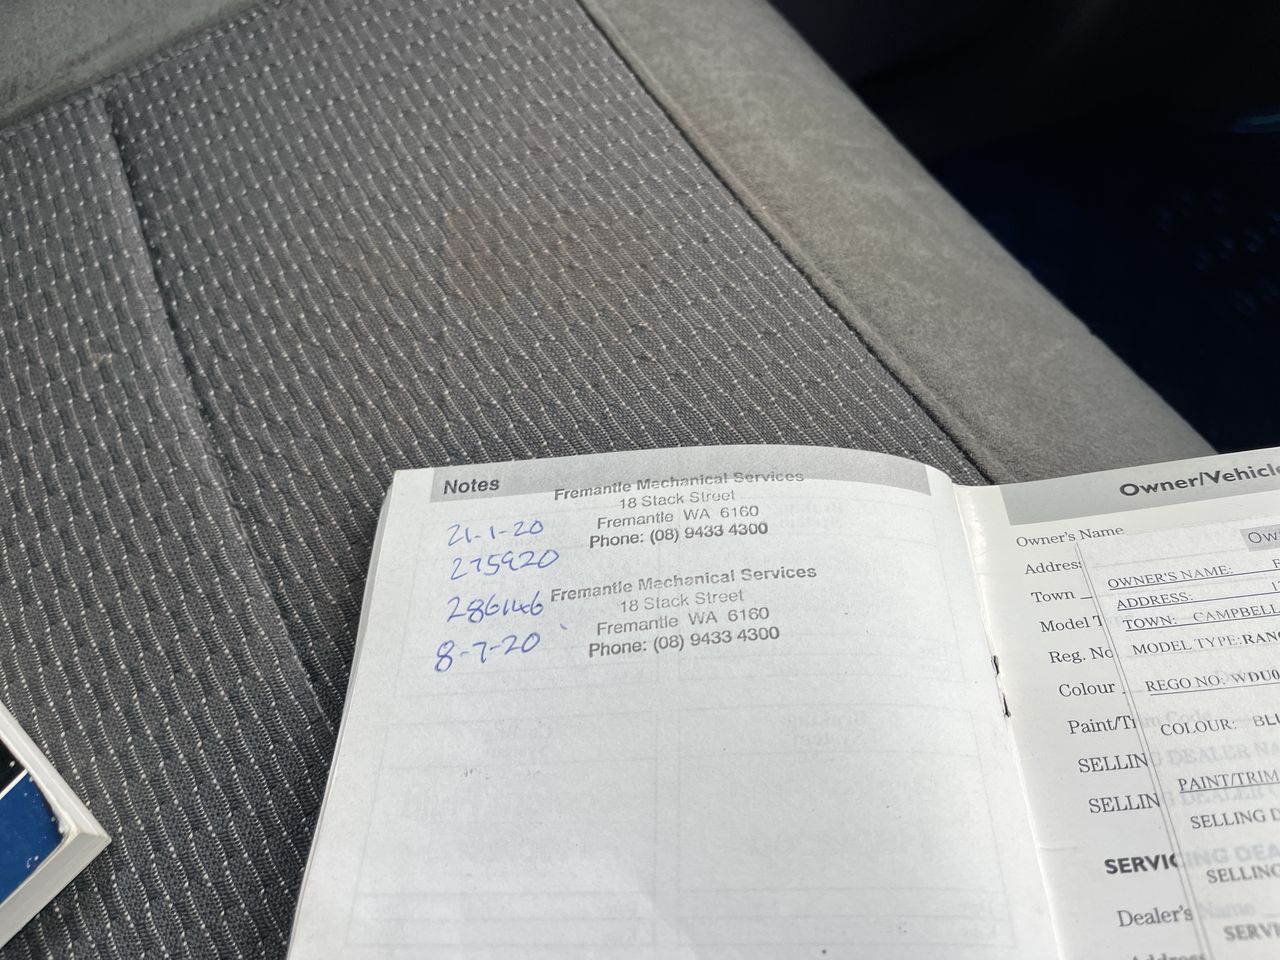 Notes
Fremantle Mechanical Services
18 Stack Street
Fremantle WA 6160
Phone: (08) 9433 4300
21-1-20
275920
Fremantle Mechanical Services
18 Stack Street
Fremantle WA 6160
Phone: (08) 9433 4300
286146
8-7-20
Owner/Vehicle
Owner's Name
Address
Town
Model T
Reg. No
Colour
Paint/Tr
SELLIN
SELLIN
SERVIC
Dealer's
Address
Ow
OWNER'S NAME:
ADDRESS:
TOWN: CAMPBELL
MODEL TYPE:RANG
REGO NO: WDU0
COLOUR: BLU
PAINT/TRIM
SELLING D
SELLING
SERVI